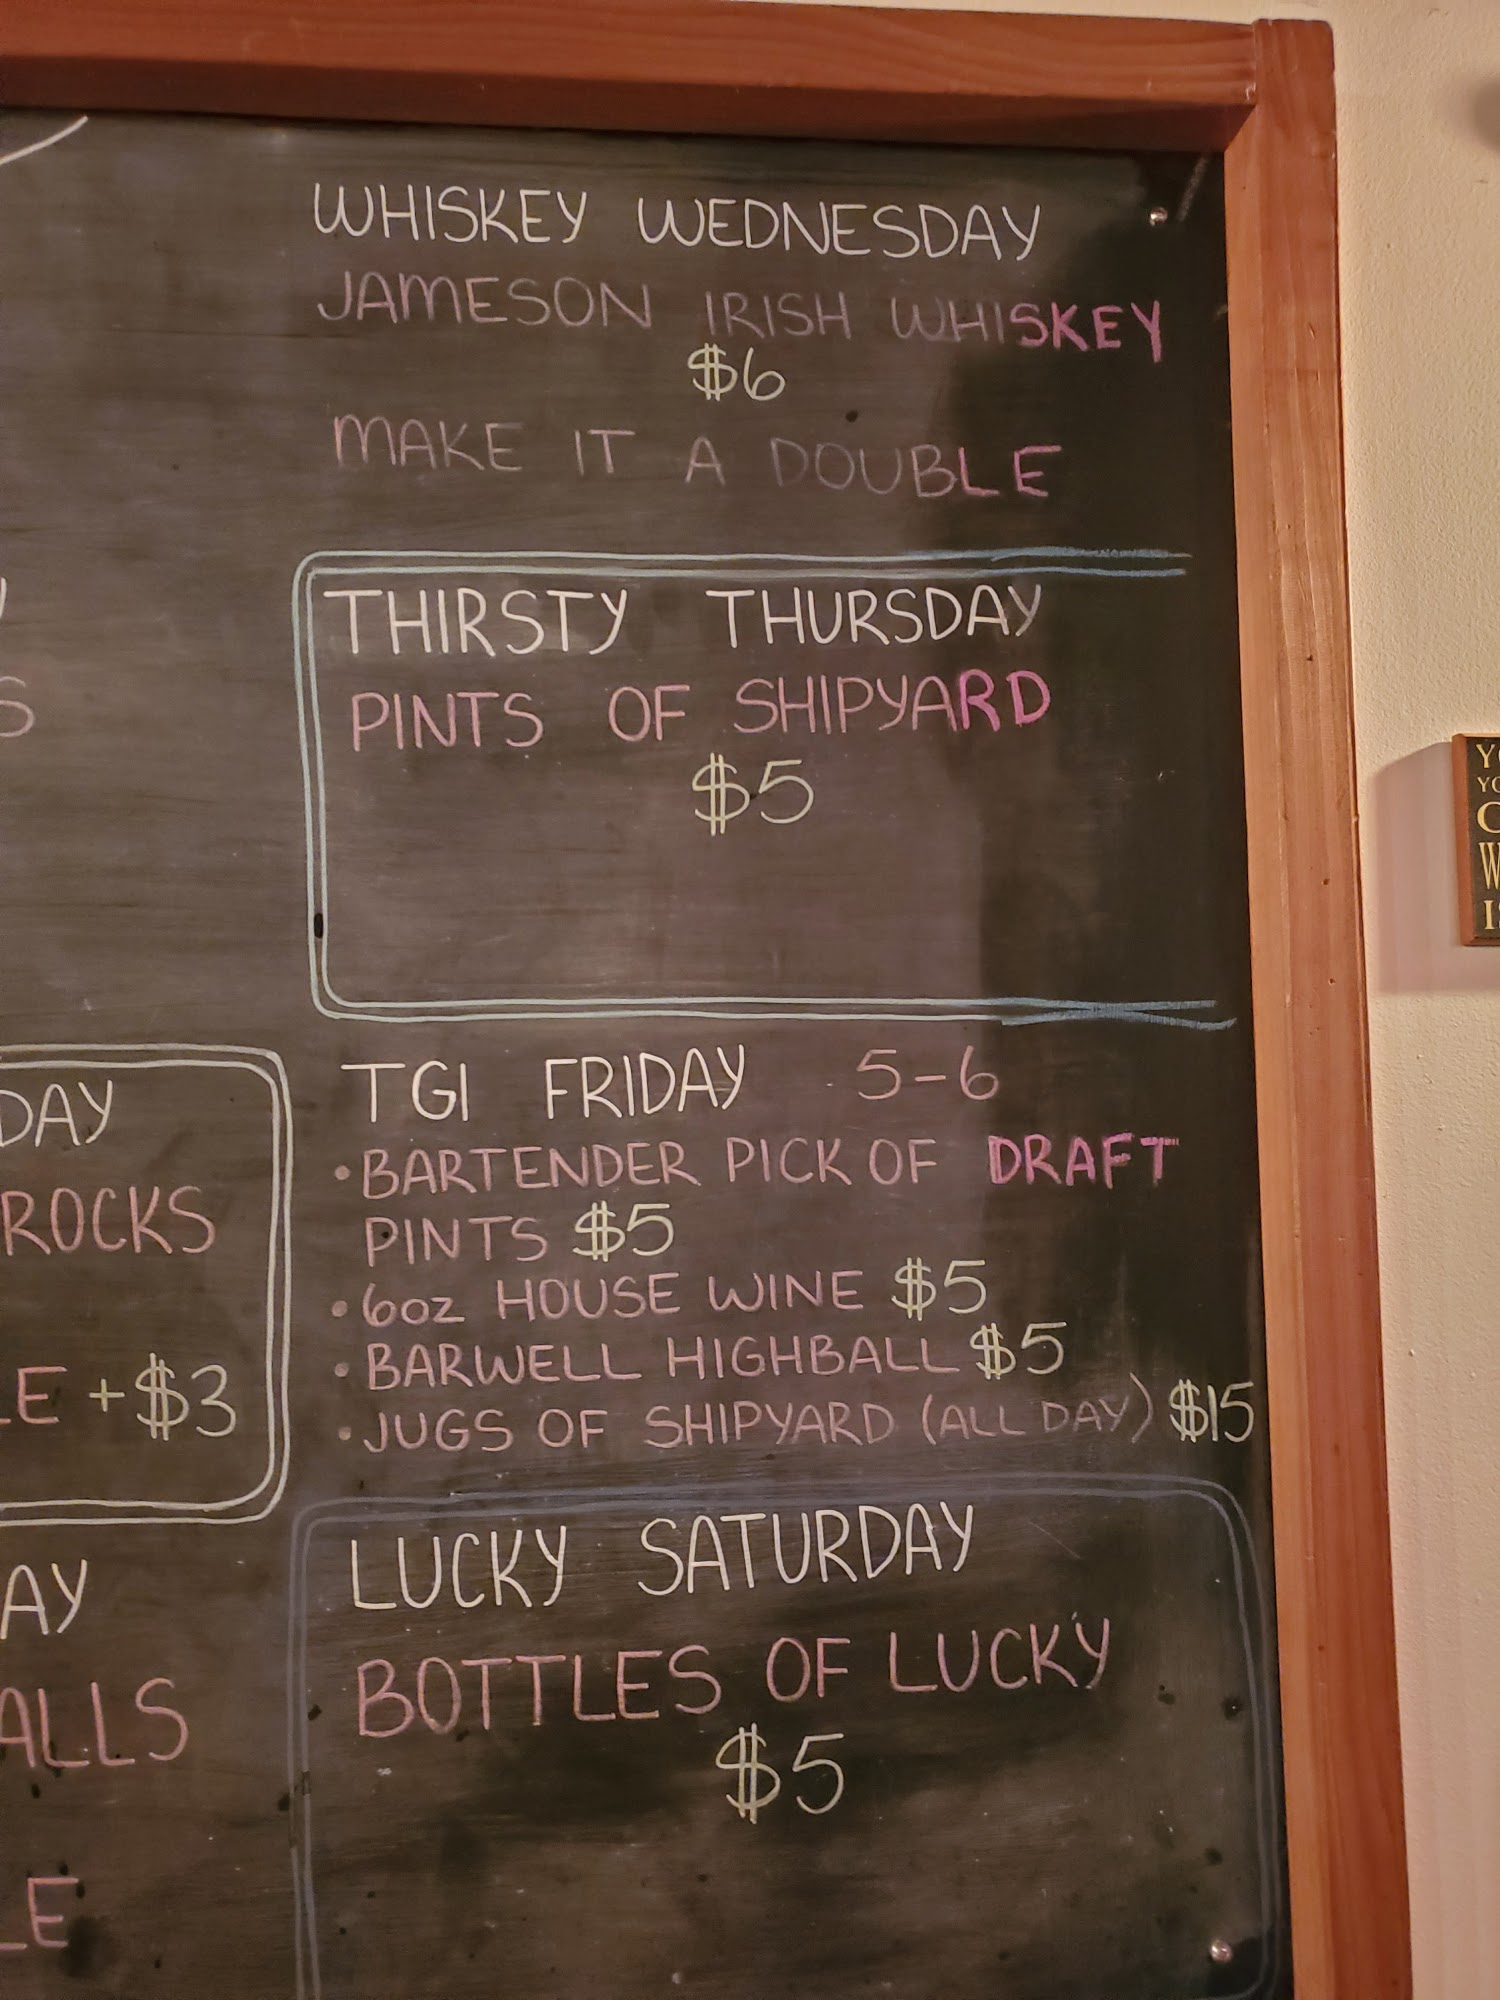 WHISKEY WEDNESDAY
JAMESON IRISH WHISKEY
$6
MAKE IT A DOUBLE
THIRSTY THURSDAY
PINTS OF SHIPYARD
$5
TGI FRIDAY 5-6
•BARTENDER PICK OF DRAFT
PINTS $5
•6oz HOUSE WINE $5
•BARWELL HIGHBALL $5
•JUGS OF SHIPYARD (ALL DAY) $15
LUCKY SATURDAY
BOTTLES OF LUCKY
$5
S
DAY
ROCKS
LE +$3
AY
ALLS
LE